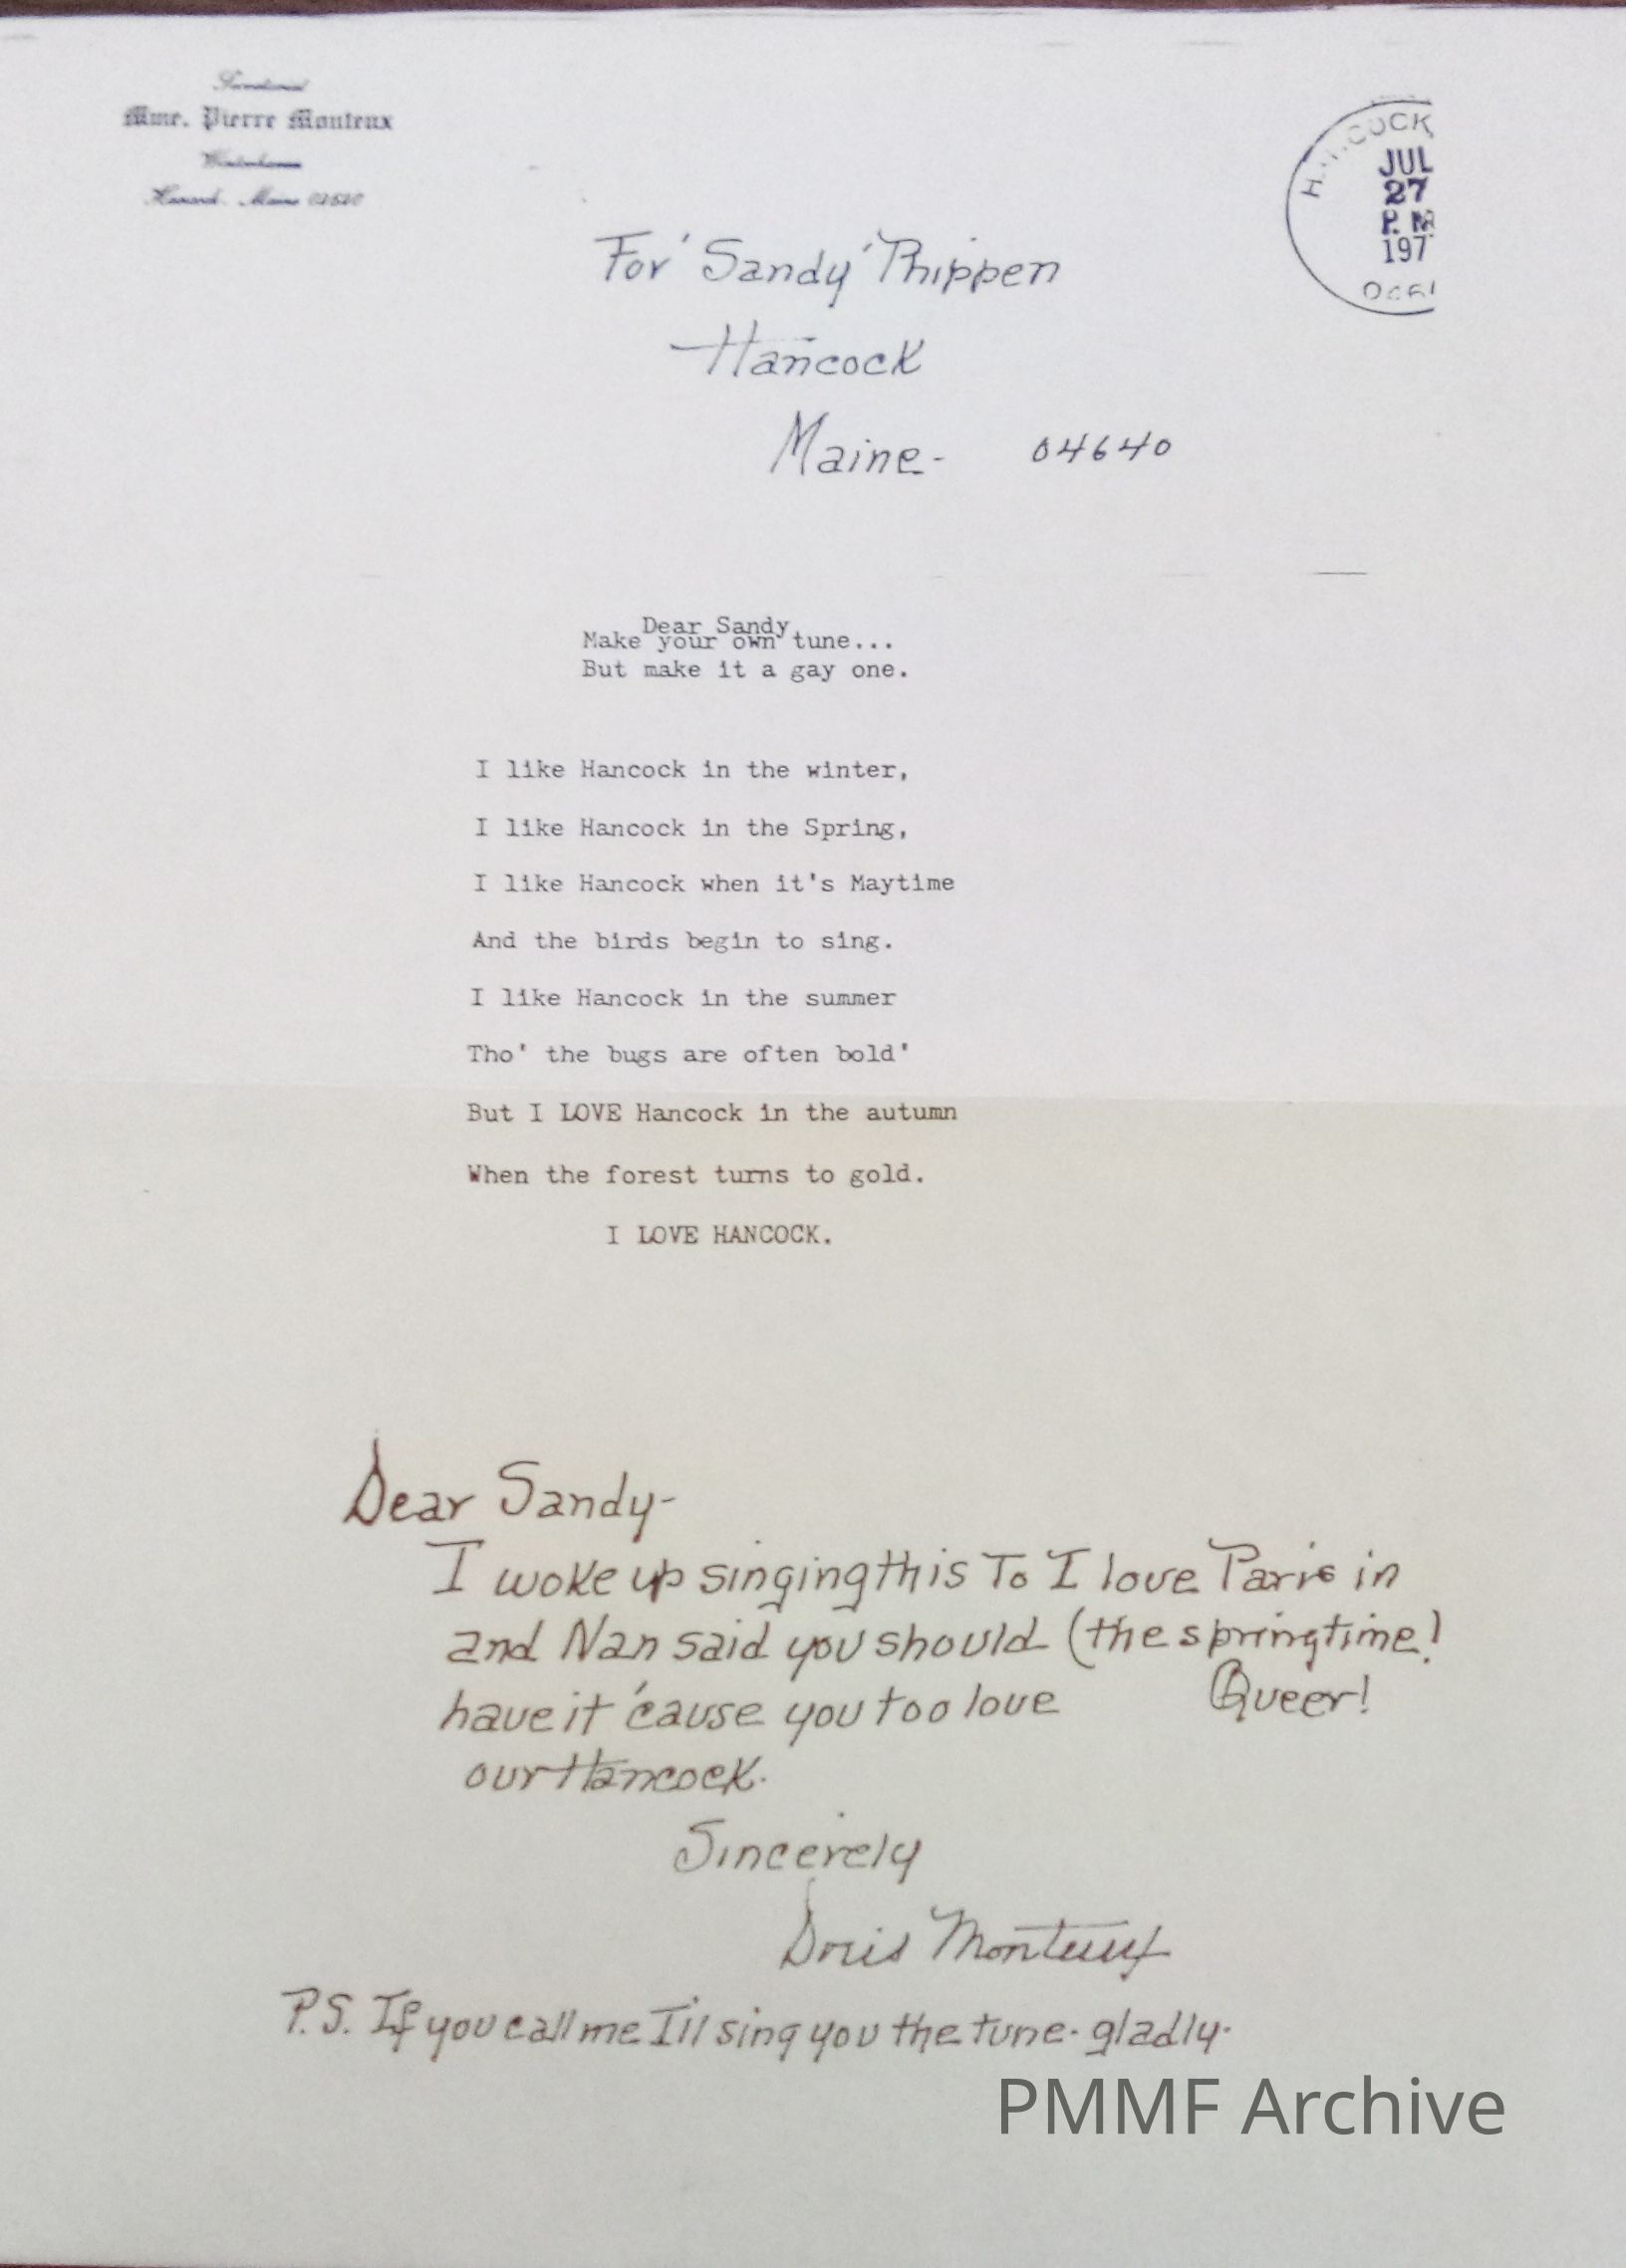 Mme. Pierre Monteux
Hancock, Maine
HANCOCK
JUL
27
P.M
197
For 'Sandy' Phippen
Hancock
Maine- 04640
Dear Sandy
Make your own tune...
But make it a gay one.
I like Hancock in the winter,
I like Hancock in the Spring,
I like Hancock when it's Maytime
And the birds begin to sing.
I like Hancock in the summer
Tho' the bugs are often bold'
But I LOVE Hancock in the autumn
When the forest turns to gold.
I LOVE HANCOCK.
Dear Sandy-
I woke up singing this To I love Paris in
and Nan said you should (the springtime!
have it 'cause you too love Queer!
our Hancock.
Sincerely
Doris Monteux
P.S. If you call me I'll sing you the tune- gladly-
PMMF Archive